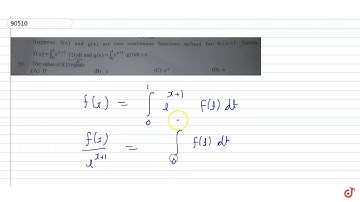 90510
Suppose f(x) and g(x) are two continuous functions defined for 0≤x≤1. Given,
f(x) = ∫₀¹ e^(x+t) · f(t) dt and g(x) = ∫₀¹ e^(x+t) · g(t) dt + x
55. The value of f(1) equals
(A) 0 (B) 1 (C) e⁻¹ (D) e
f(x) = ∫₀¹ e^(x+t) f(t) dt
f(x)/e^(x+1) = ∫₀ f(t) dt
doubtnut